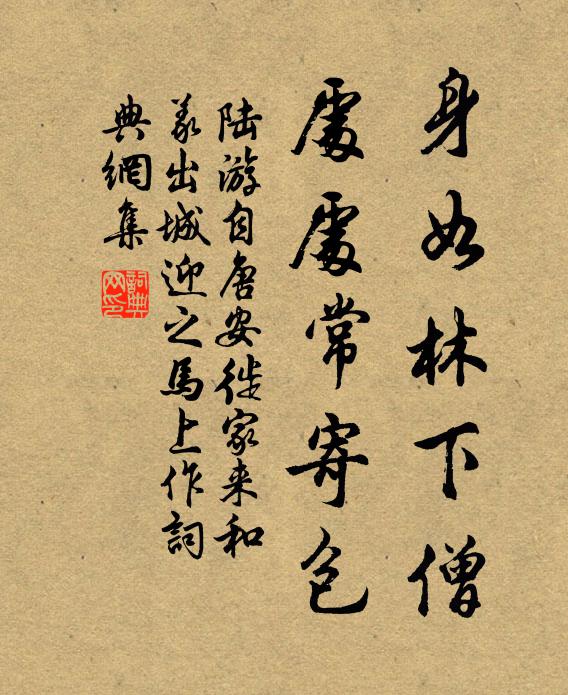 身如林下僧
處處常寄包
陸游自唐安徙家来和
義出城迎之馬上作詞
典網集
詞典网印